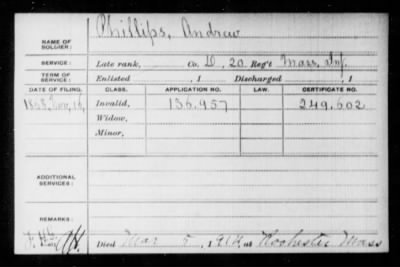 NAME OF SOLDIER: Phillips, Andrew
SERVICE: Late rank, Co. D, 20 Reg't Mass. Inf.
TERM OF SERVICE: Enlisted , 1 Discharged , 1
DATE OF FILING. CLASS. APPLICATION NO. LAW. CERTIFICATE NO.
Nov. 16, Invalid, 136.957 249.602
Widow,
Minor,
ADDITIONAL SERVICES:
REMARKS:
Died Mar 5, 1914, at Rochester Mass